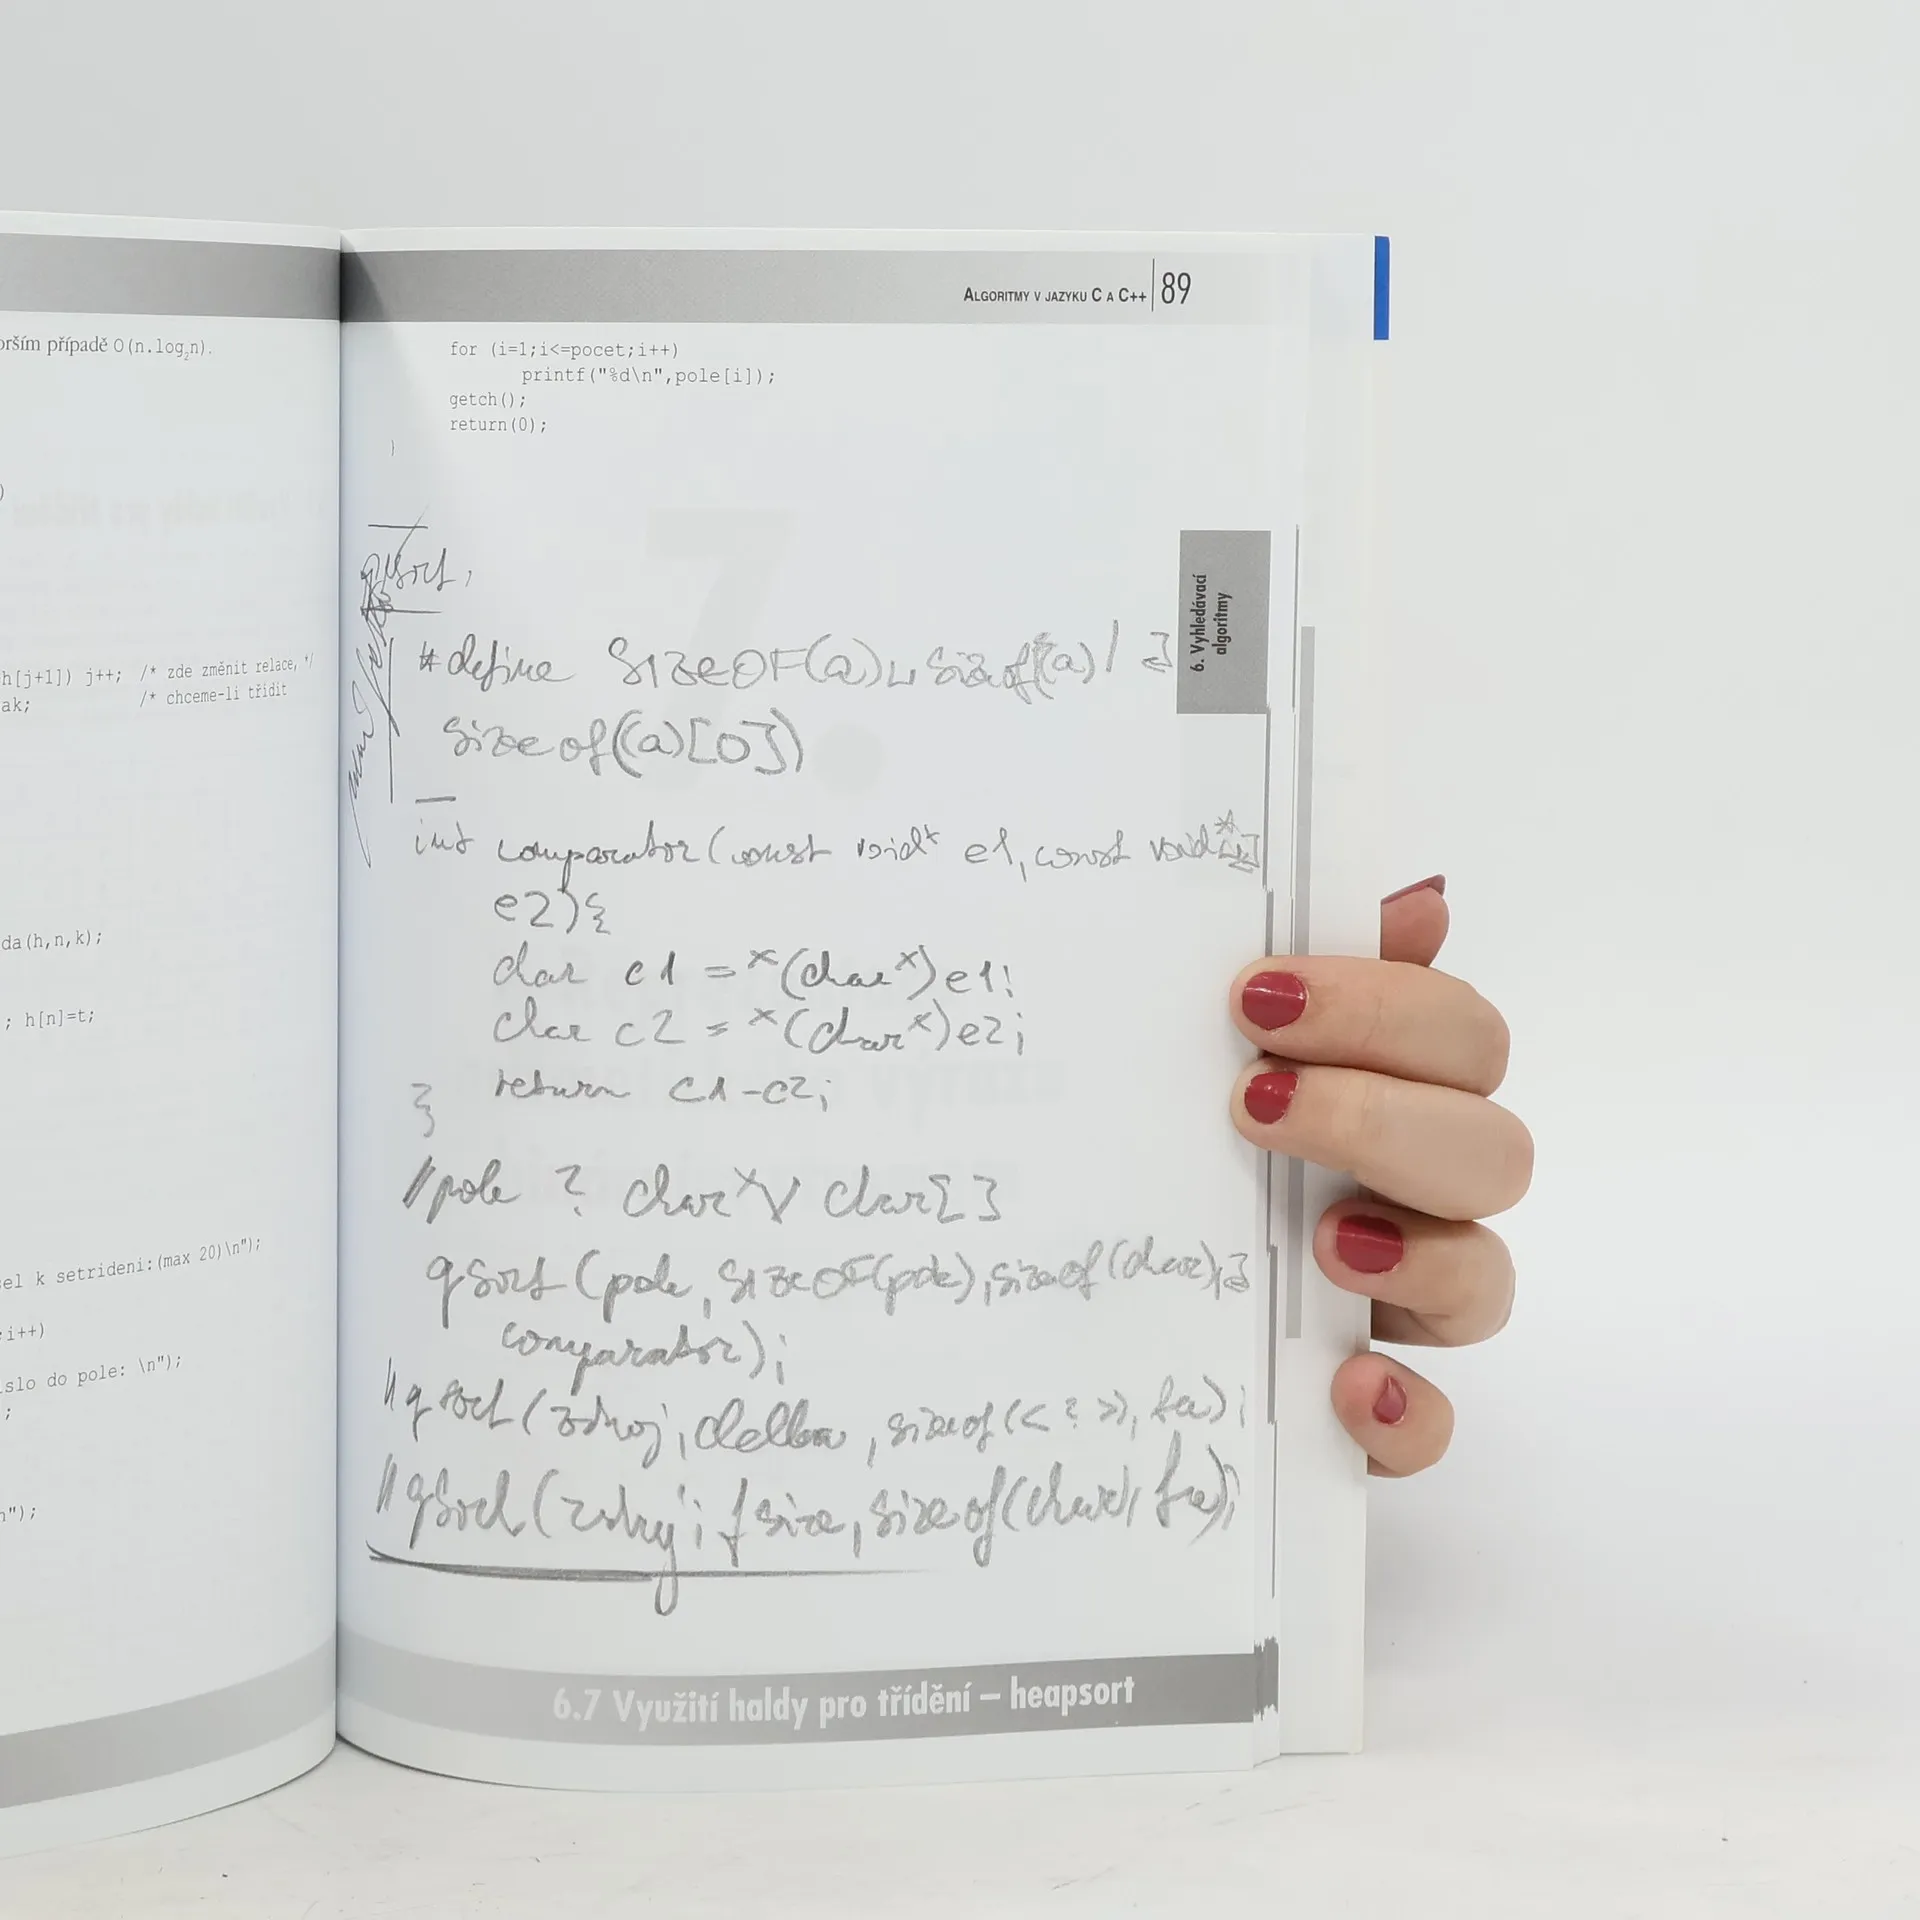 orším případě O(n.log₂n).
)
h[j+1]) j++; /* zde změnit relace, */
ak; /* chceme-li třídit
da(h,n,k);
; h[n]=t;
el k setrideni:(max 20)\n");
;i++)
slo do pole: \n");
;
n");
ALGORITMY V JAZYKU C A C++ 89
for (i=1;i<=pocet;i++)
printf("%d\n",pole[i]);
getch();
return(0);
}
6. Vyhledávací
algoritmy
qsort,
#define SIZEOF(a)␣sizeof((a)/
sizeof((a)[0])
int comparator(const void* e1, const void*
e2){
char c1 = *(char*)e1;
char c2 = *(char*)e2;
return c1-c2;
}
//pole ? char* V char[]
qsort(pole, SIZEOF(pole), sizeof(char),
comparator);
//qsort(zdroj, delka, sizeof(<?>), fu);
//qsort(zdroj, fsize, sizeof(char), fu);
6.7 Využití haldy pro třídění – heapsort